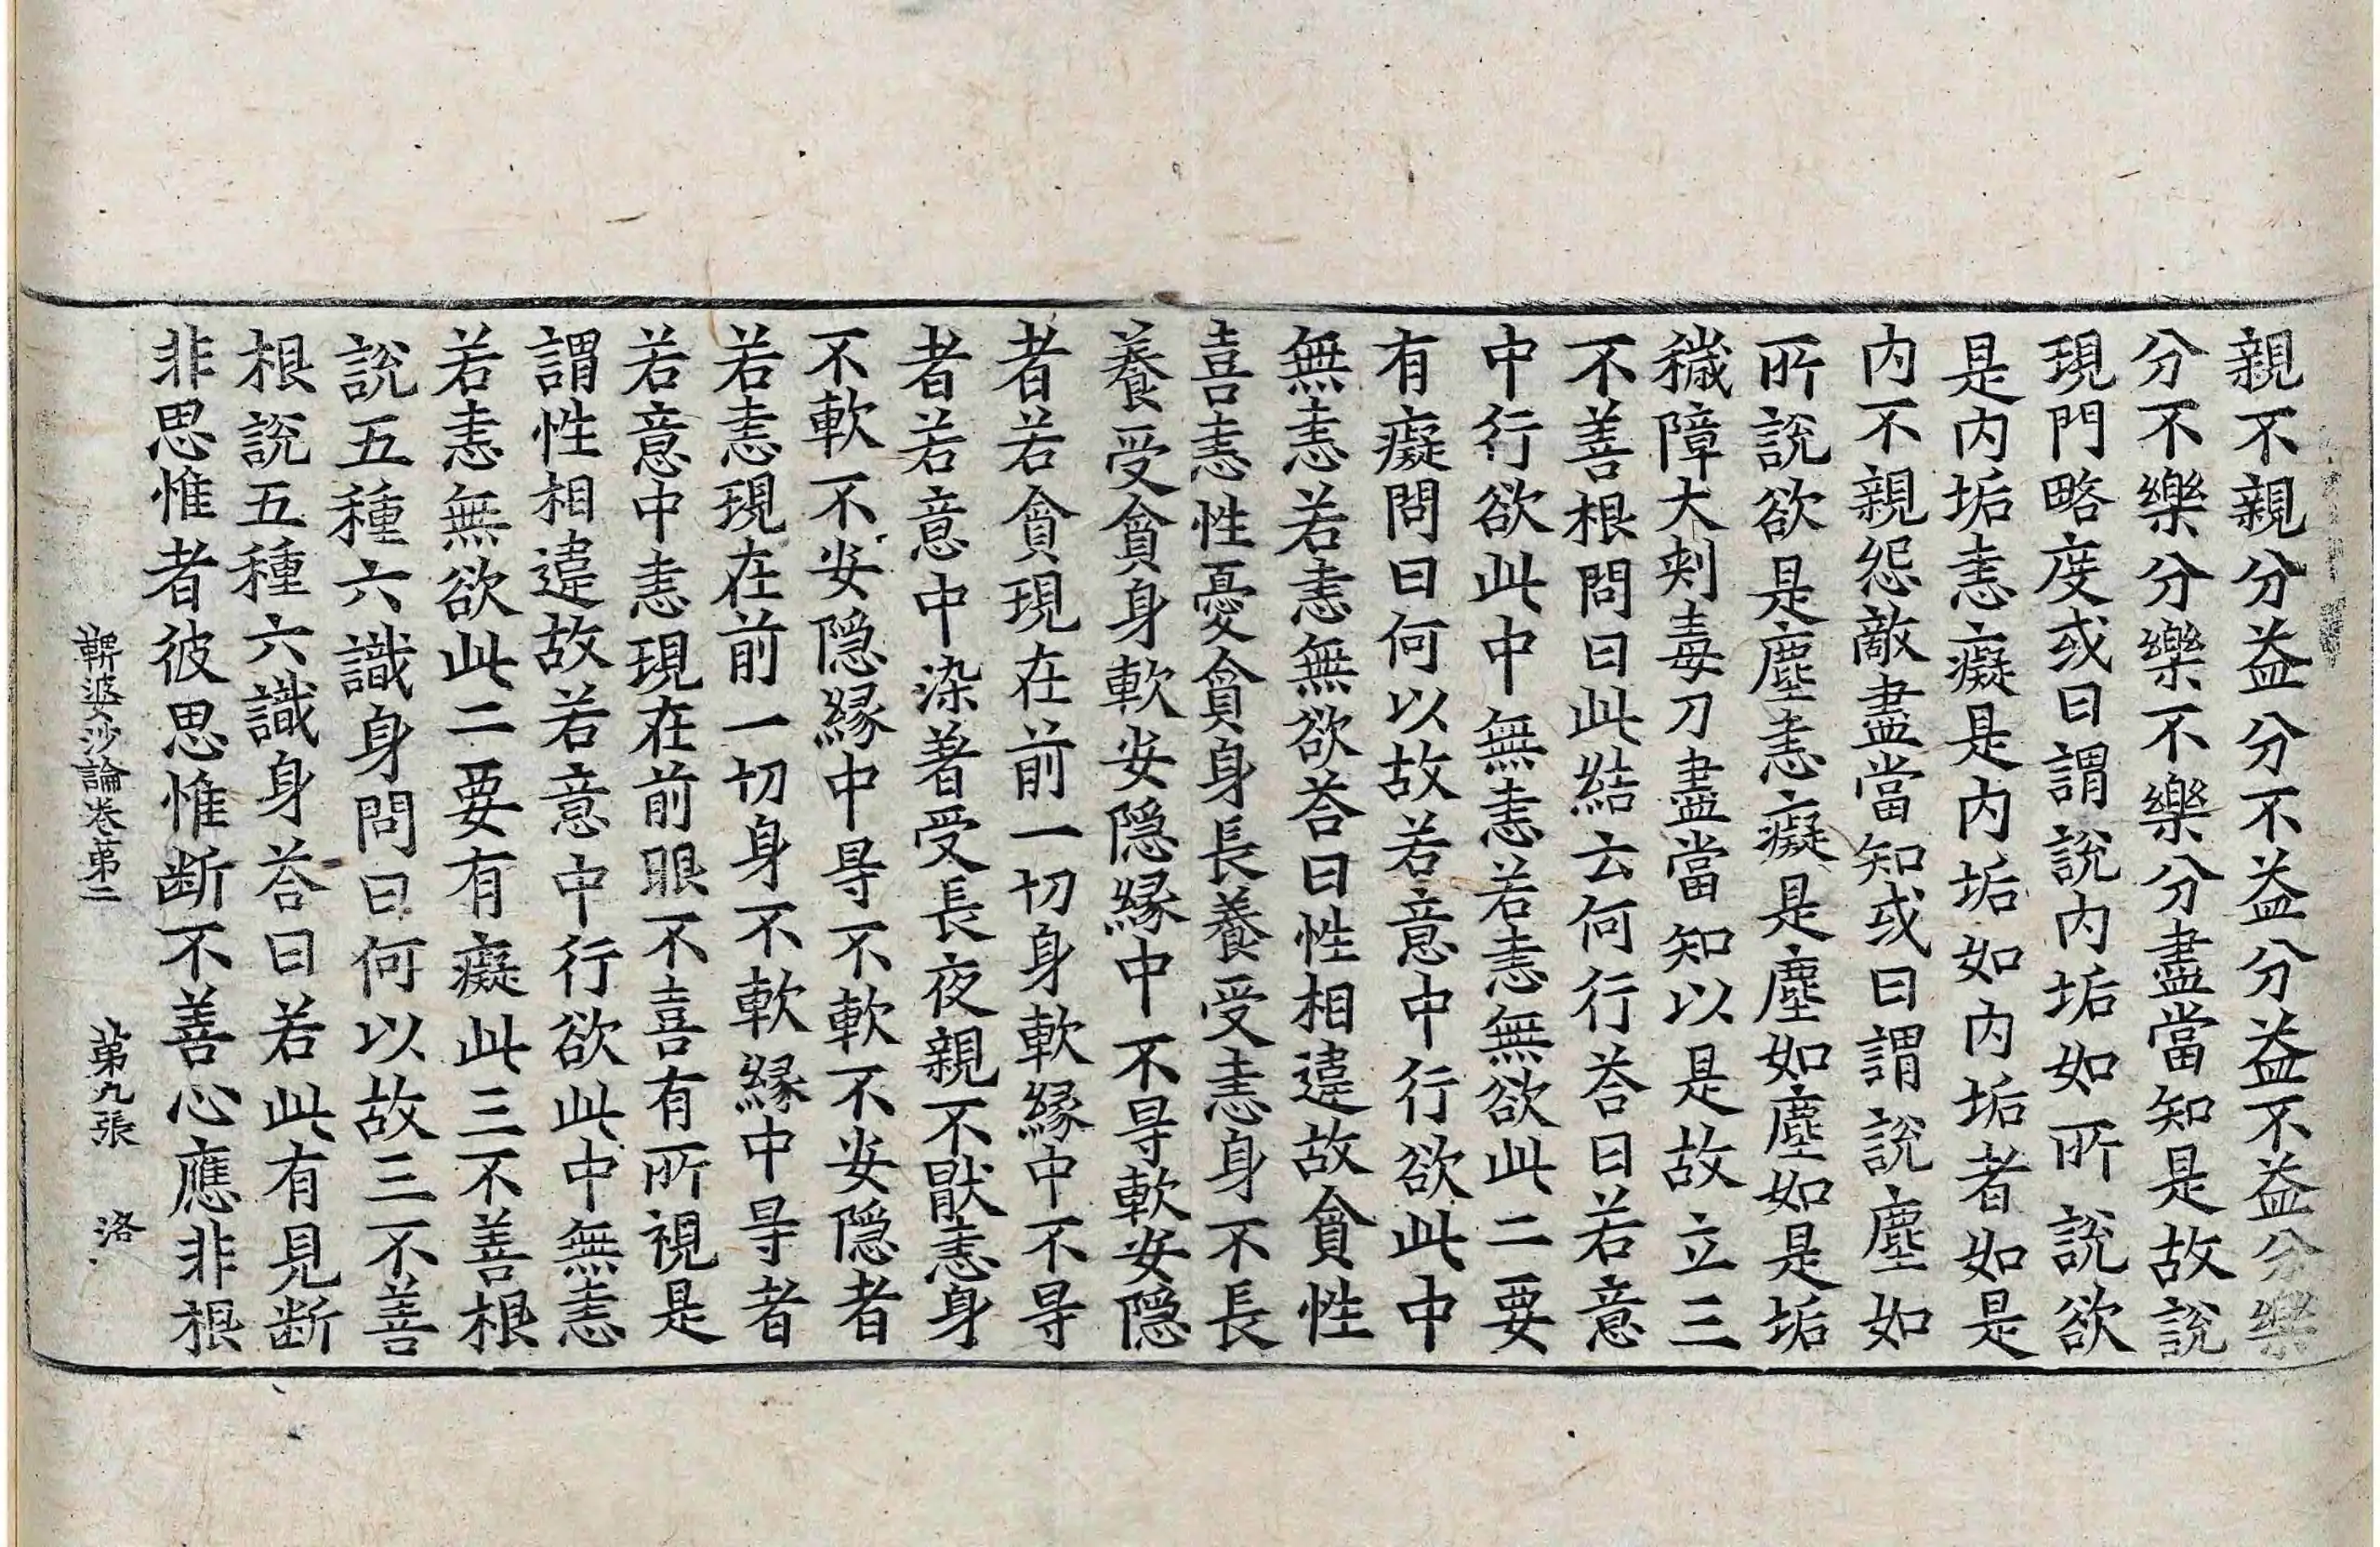 親不親分益分不益分益不益分樂
分不樂分樂不樂分盡當知是故說
現門略度或曰謂說内垢如所說欲
是内垢恚癡是内垢如内垢者如是
内不親怨敵盡當知或曰謂說塵如
所說欲是塵恚癡是塵如塵如是垢
穢障大刾毒刀盡當知以是故立三
不善根問曰此結云何行荅曰若意
中行欲此中無恚若恚無欲此二要
有癡問曰何以故若意中行欲此中
無恚若恚無欲荅曰性相違故貪性
喜恚性憂貪身長養受恚身不長
養受貪身軟安隠縁中不㝵軟安隠
者若貪現在前一切身軟縁中不㝵
者若意中染著受長夜親不猒恚身
不軟不安隠縁中㝵不軟不安隠者
若恚現在前一切身不軟縁中㝵者
若意中恚現在前眼不喜有所視是
謂性相違故若意中行欲此中無恚
若恚無欲此二要有癡此三不善根
說五種六識身問曰何以故三不善
根說五種六識身荅曰若此有見断
非思惟者彼思惟断不善心應非根
鞞婆沙論卷苐二 苐九張 洛